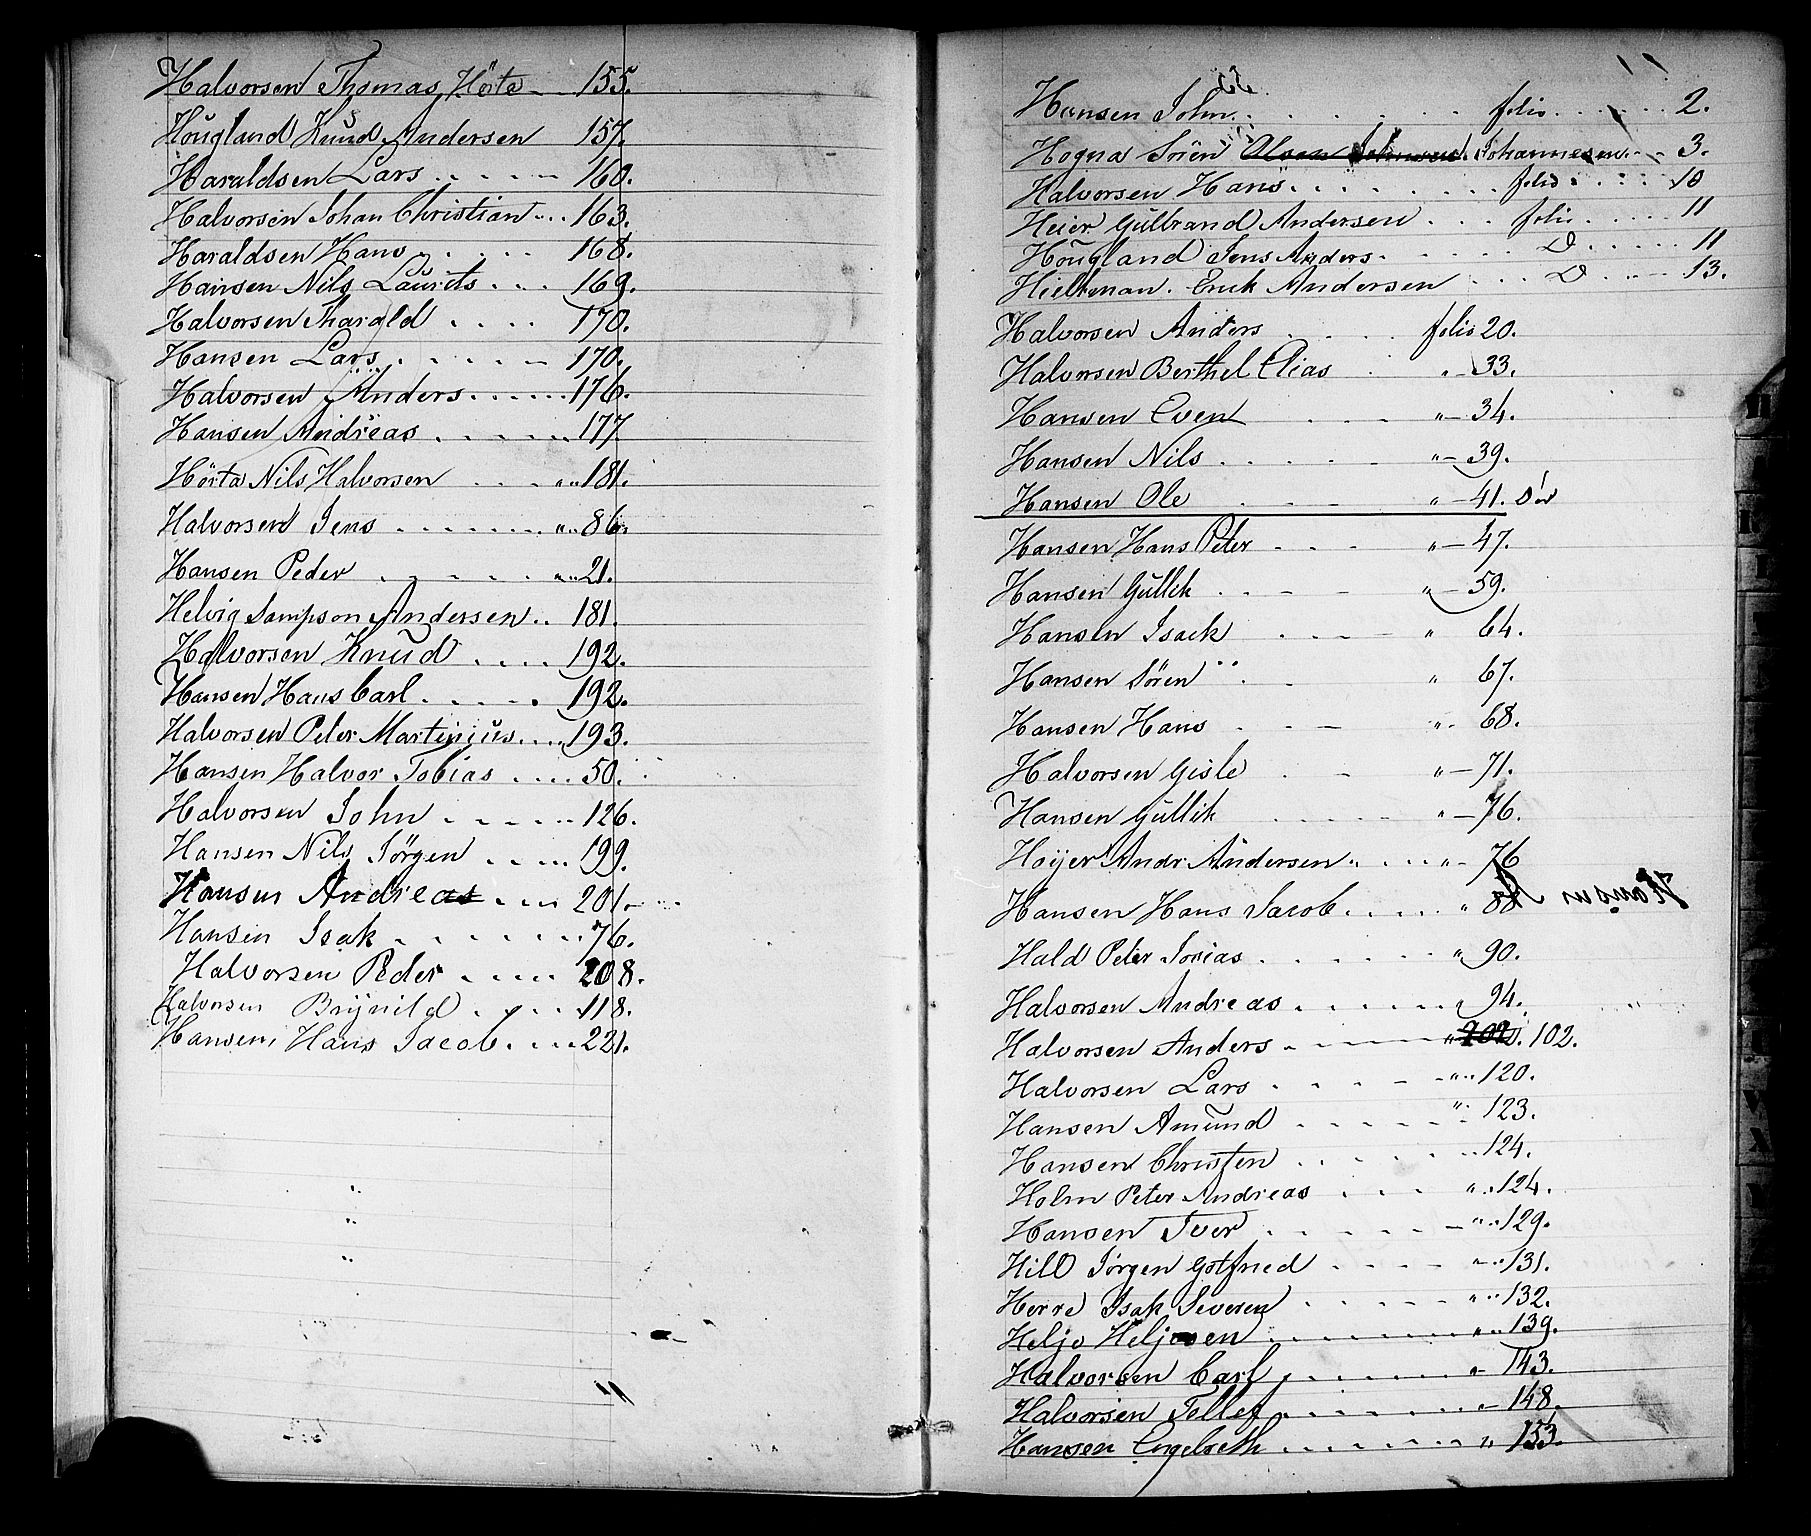 Halvorsen Thomas Hörta 155.
Hougland Knud Andersen 157.
Haraldsen Lars 160.
Halvorsen Johan Christian 163.
Haraldsen Hans 168.
Hansen Nils Laurits 169.
Halvorsen Tharald 170.
Hansen Lars 170.
Halvorsen Anders 176.
Hansen Andreas 177.
Hörta Nils Halvorsen " 181.
Halvorsen Jens " 86.
Hansen Peder " 21.
Helvig Sampson Andersen 181.
Halvorsen Knud 192.
Hansen Hans Carl 192.
Halvorsen Peter Martinius 193.
Hansen Halvor Tobias 50.
Halvorsen John 126.
Hansen Nils Jörgen 199.
Hansen Andreas 201.
Hansen Isak 76.
Halvorsen Peder 208.
Halvorsen Brynild 118.
Hansen, Hans Jacob 221.
Hansen John folio 2.
Hogna Sören Olsen Johannesen 3.
Halvorsen Hans folio 10
Heier Gulbrand Andersen folio 11
Hougland Jens Anders D 11
Hieltman Erick Andersen D 13.
Halvorsen Anders folio 20.
Halvorsen Berthel Elias " 33.
Hansen Even " 34.
Hansen Nils " 39.
Hansen Ole " 41. död
Hansen Hans Peter " 47.
Hansen Gullik " 59.
Hansen Isack " 64.
Hansen Sören " 67.
Hansen Hans " 68.
Halvorsen Gisle " 71.
Hansen Gullik " 76.
Hoyer Andr. Andersen " 76
Hansen Hans Jacob " 88
Hald Peter Josias " 90.
Halvorsen Andreas " 94.
Halvorsen Anders " 202. 102.
Halvorsen Lars " 120.
Hansen Amund " 123.
Hansen Christen " 124.
Holm Peter Andreas " 124.
Hansen Iver " 129.
Hill Jörgen Gotfried " 131.
Herre Isak Severen " 132.
Heljo Heljesen " 139.
Halvorsen Carl " 143.
Halvorsen Tellef 148.
Hansen Engebreth " 153.